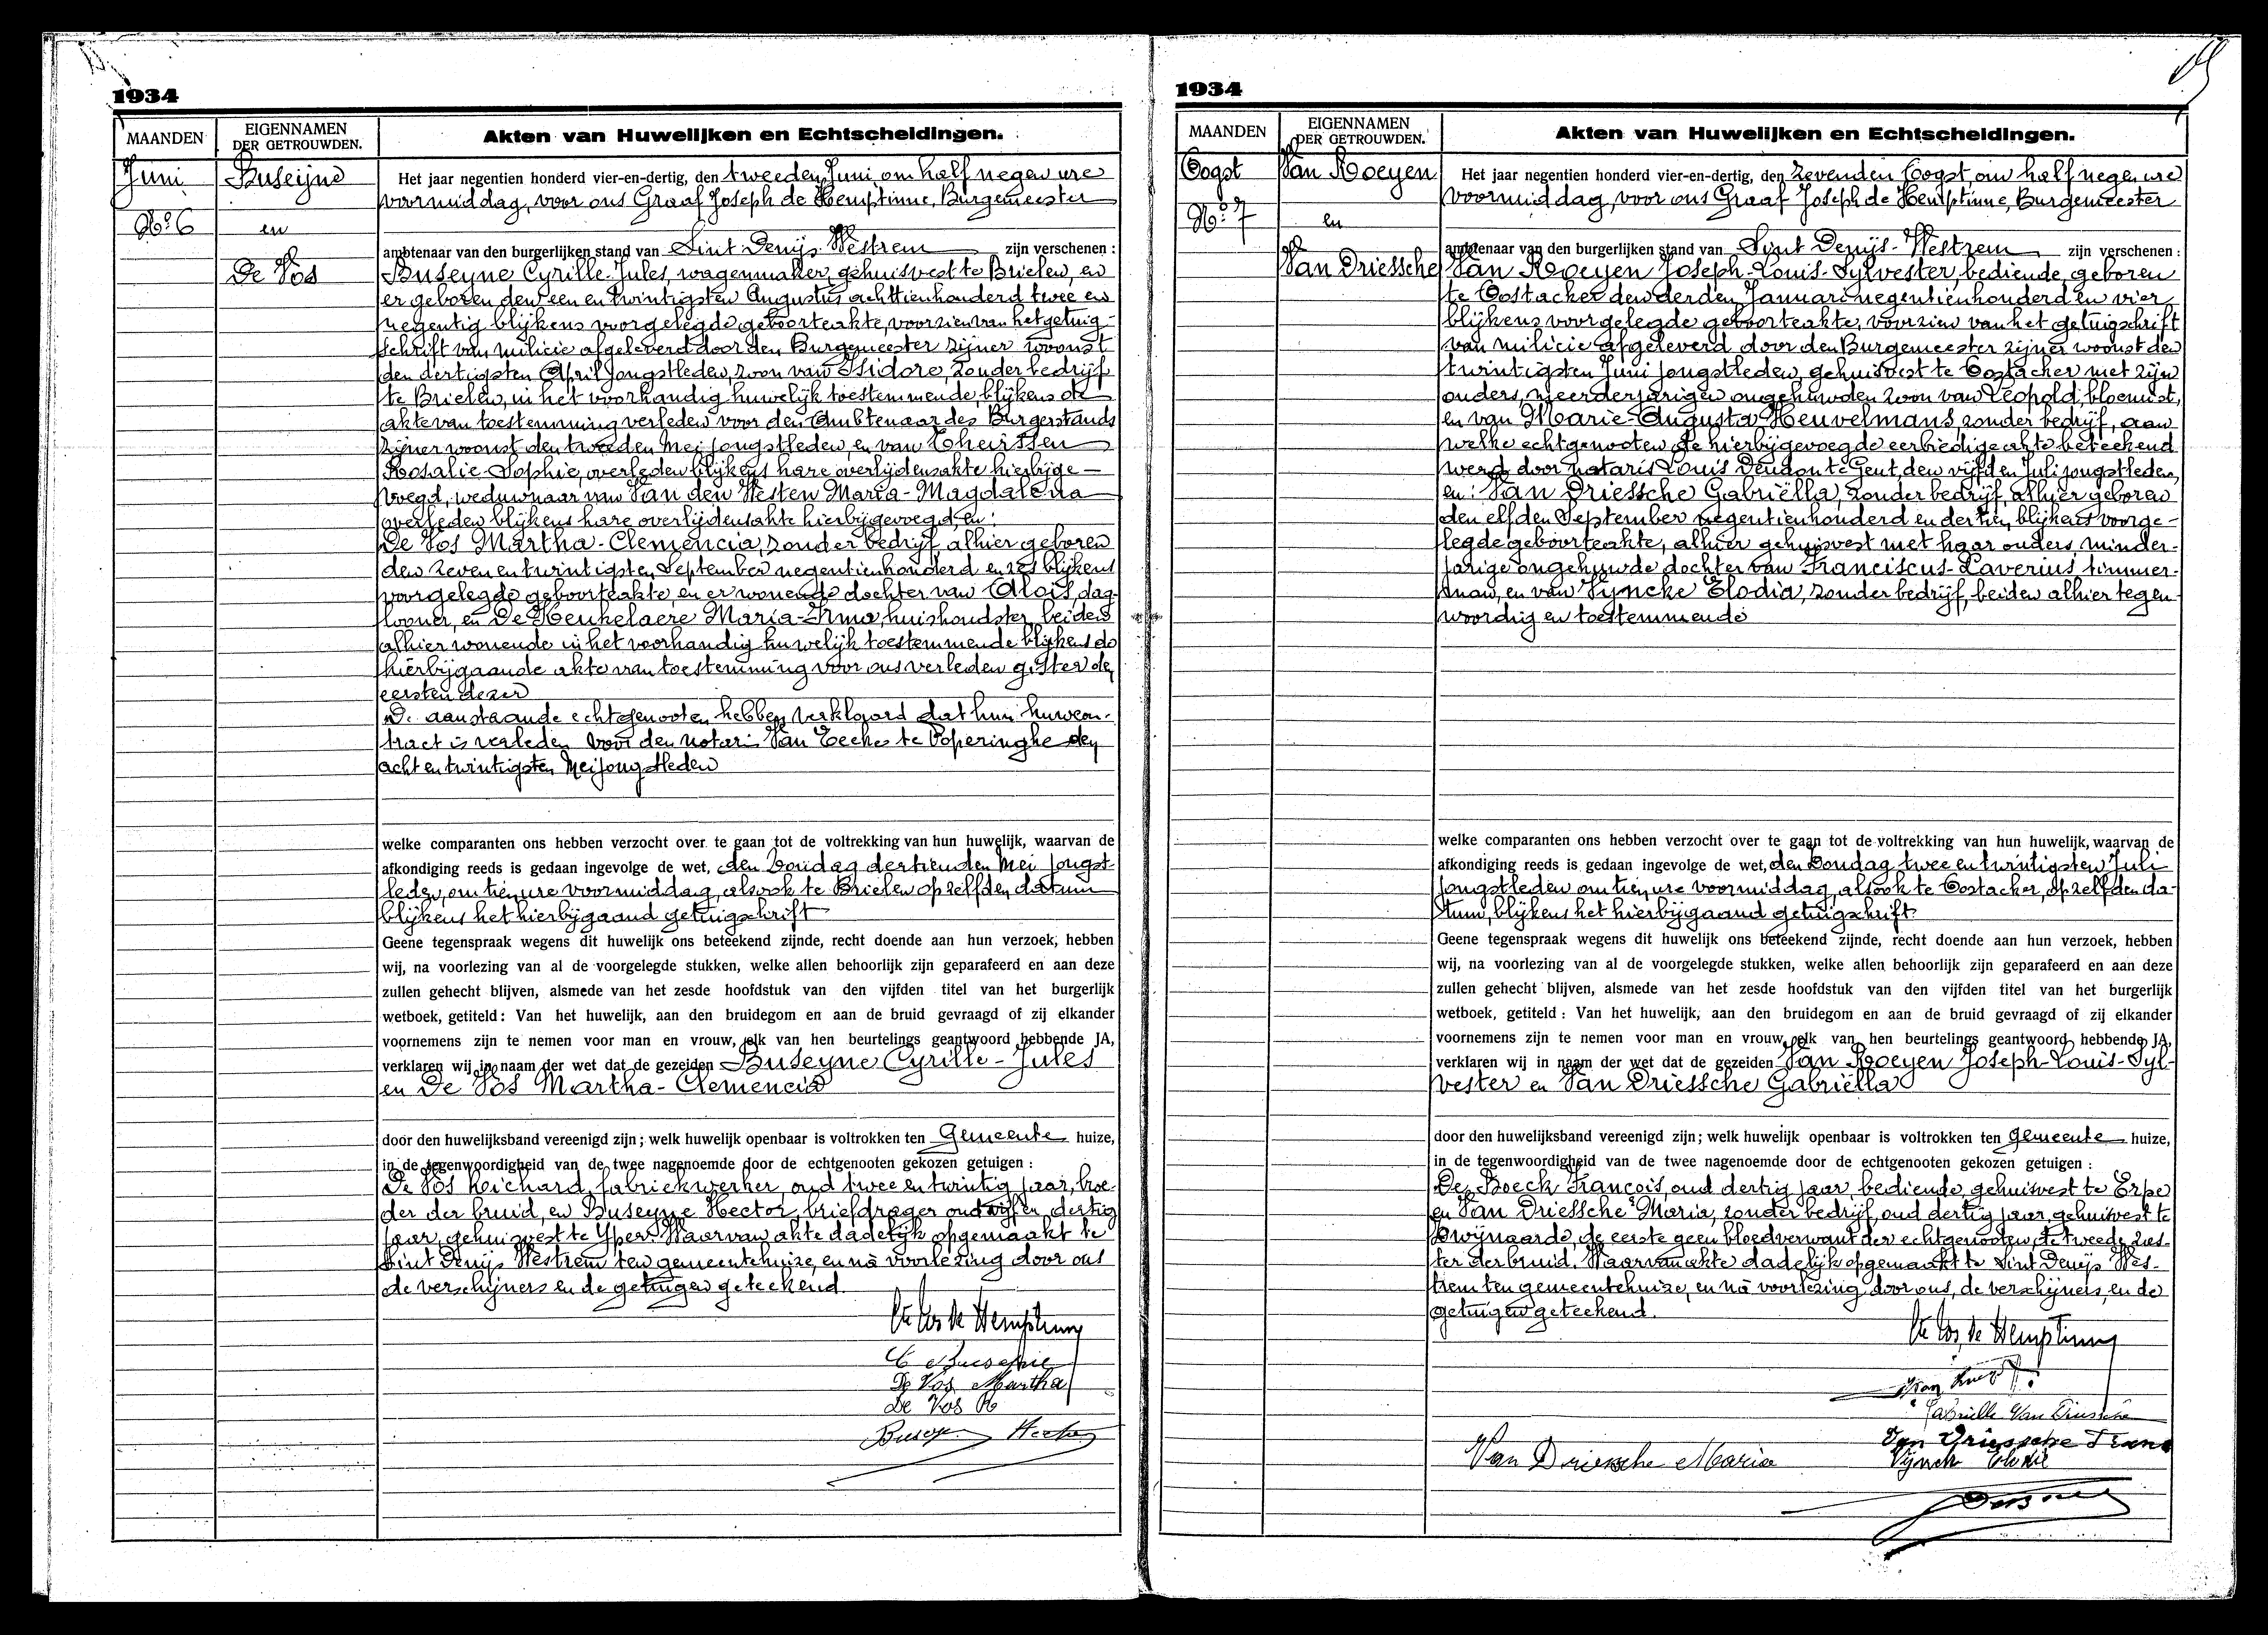 1934
MAANDEN
EIGENNAMEN
DER GETROUWDEN.
Akten van Huwelijken en Echtscheidingen.
Juni
Buseijne
Nº 6
en
De Vos
Het jaar negentien honderd vier-en-dertig, den tweeden Juni om half negen ure
voormiddag, voor ons Graaf Joseph de Hemptinne, Burgemeester
ambtenaar van den burgerlijken stand van Sint Denijs-Westrem zijn verschenen :
Buseyne Cyrille-Jules, wagenmaker, gehuisvest te Brielen, en
er geboren den een en twintigsten Augustus achttienhonderd twee en
negentig blijkens voorgelegde geboorteakte, voorzien van het getuig-
schrift van milicie afgeleverd door den Burgemeester zijner woonst
den dertigsten April jongstleden, zoon van Isidore, zonder bedrijf
te Brielen, in het voorhandig huwelijk toestemmende, blijkens de
akte van toestemming verleden voor den Ambtenaar des Burgerstands
zijner woonst den tweeden Mei jongstleden, en van Theirssen
Rosalie-Sophie, overleden blijkens hare overlijdensakte hierbijge-
voegd, weduwnaar van Van den Westen Maria-Magdalena
overleden blijkens hare overlijdensakte hierbijgevoegd, en:
De Vos Martha-Clemencia, zonder bedrijf, alhier geboren
den zeven en twintigsten September negentienhonderd en zes blijkens
voorgelegde geboorteakte, en er wonende dochter van Aloïs, dag-
looner, en De Keukelaere Maria-Irma, huishoudster, beiden
alhier wonende in het voorhandig huwelijk toestemmende blijkens de
hierbijgaande akte van toestemming voor ons verleden gister den
eersten dezer
De aanstaande echtgenooten hebben verklaard dat hun huwcon-
tract is verleden voor den notaris Van Eecke te Poperinghe den
acht en twintigsten Mei jongstleden
welke comparanten ons hebben verzocht over te gaan tot de voltrekking van hun huwelijk, waarvan de
afkondiging reeds is gedaan ingevolge de wet, den Zondag dertienden Mei jongst-
leden, om tien ure voormiddag, alsook te Brielen op zelfden datum
blijkens het hierbijgaand getuigschrift
Geene tegenspraak wegens dit huwelijk ons beteekend zijnde, recht doende aan hun verzoek, hebben
wij, na voorlezing van al de voorgelegde stukken, welke allen behoorlijk zijn geparafeerd en aan deze
zullen gehecht blijven, alsmede van het zesde hoofdstuk van den vijfden titel van het burgerlijk
wetboek, getiteld : Van het huwelijk, aan den bruidegom en aan de bruid gevraagd of zij elkander
voornemens zijn te nemen voor man en vrouw, elk van hen beurtelings geantwoord hebbende JA,
verklaren wij in naam der wet dat de gezeiden Buseyne Cyrille-Jules
en De Vos Martha-Clemencia
door den huwelijksband vereenigd zijn; welk huwelijk openbaar is voltrokken ten Gemeente huize,
in de tegenwoordigheid van de twee nagenoemde door de echtgenooten gekozen getuigen :
De Vos Richard, fabriekwerker, oud twee en twintig jaar, broe-
der der bruid, en Buseyne Hector, briefdrager oud vijf en dertig
jaar, gehuisvest te Yper. Waarvan akte dadelijk opgemaakt te
Sint Denijs Westrem ten gemeentehuize, en nà voorlezing door ons
de verschijners en de getuigen geteekend.
C Buseyne
De Vos Martha
De Vos R
Buseyne Hector
1934
MAANDEN
EIGENNAMEN
DER GETROUWDEN.
Akten van Huwelijken en Echtscheidingen.
Oogst
Van Roeyen
Nº 7
en
Van Driessche
Het jaar negentien honderd vier-en-dertig, den zevenden Oogst om half negen ure
voormiddag, voor ons Graaf Joseph de Hemptinne, Burgemeester
ambtenaar van den burgerlijken stand van Sint Denijs-Westrem zijn verschenen :
Van Roeyen Joseph-Louis-Sylvester, bediende, geboren
te Oostacker den derden Januari negentienhonderd en vier
blijkens voorgelegde geboorteakte, voorzien van het getuigschrift
van milicie afgeleverd door den Burgemeester zijner woonst den
twintigsten Juni jongstleden, gehuisvest te Oostacker met zijn
ouders, meerderjarigen ongehuwden zoon van Leopold, bloemist,
en van Marie-Augusta Heuvelmans, zonder bedrijf, aan
welke echtgenooten de hierbijgevoegde eerbiedige akte beteekend
werd door notaris Louis Deudon te Gent, den vijfden Juli jongstleden,
en: Van Driessche Gabriëlla, zonder bedrijf, alhier geboren
den elfden September negentienhonderd en dertien, blijkens voorge-
legde geboorteakte, alhier gehuisvest met haar ouders, minder-
jarige ongehuwde dochter van Franciscus-Xaverius timmer-
man, en van Vyncke Elodia, zonder bedrijf, beiden alhier tegen-
woordig en toestemmende
welke comparanten ons hebben verzocht over te gaan tot de voltrekking van hun huwelijk, waarvan de
afkondiging reeds is gedaan ingevolge de wet, den Zondag twee en twintigsten Juli
jongstleden om tien ure voormiddag, alsook te Oostacker, op zelfden da-
tum, blijkens het hierbijgaand getuigschrift.
Geene tegenspraak wegens dit huwelijk ons beteekend zijnde, recht doende aan hun verzoek, hebben
wij, na voorlezing van al de voorgelegde stukken, welke allen behoorlijk zijn geparafeerd en aan deze
zullen gehecht blijven, alsmede van het zesde hoofdstuk van den vijfden titel van het burgerlijk
wetboek, getiteld : Van het huwelijk, aan den bruidegom en aan de bruid gevraagd of zij elkander
voornemens zijn te nemen voor man en vrouw, elk van hen beurtelings geantwoord hebbende JA,
verklaren wij in naam der wet dat de gezeiden Van Roeyen Joseph-Louis-Syl-
vester en Van Driessche Gabriëlla
door den huwelijksband vereenigd zijn; welk huwelijk openbaar is voltrokken ten Gemeente huize,
in de tegenwoordigheid van de twee nagenoemde door de echtgenooten gekozen getuigen :
De Boeck François, oud dertig jaar, bediende, gehuisvest te Erpe
en Van Driessche Maria, zonder bedrijf, oud dertig jaar, gehuisvest te
Zwijnaarde, de eerste geen bloedverwant der echtgenooten, de tweede zus-
ter der bruid. Waarvan akte dadelijk opgemaakt te Sint Denijs Wes-
trem ten gemeentehuize, en nà voorlezing door ons, de verschijners, en de
getuigen geteekend.
Gabrielle Van Driessche
Van Driessche Frans
Van Driessche Maria